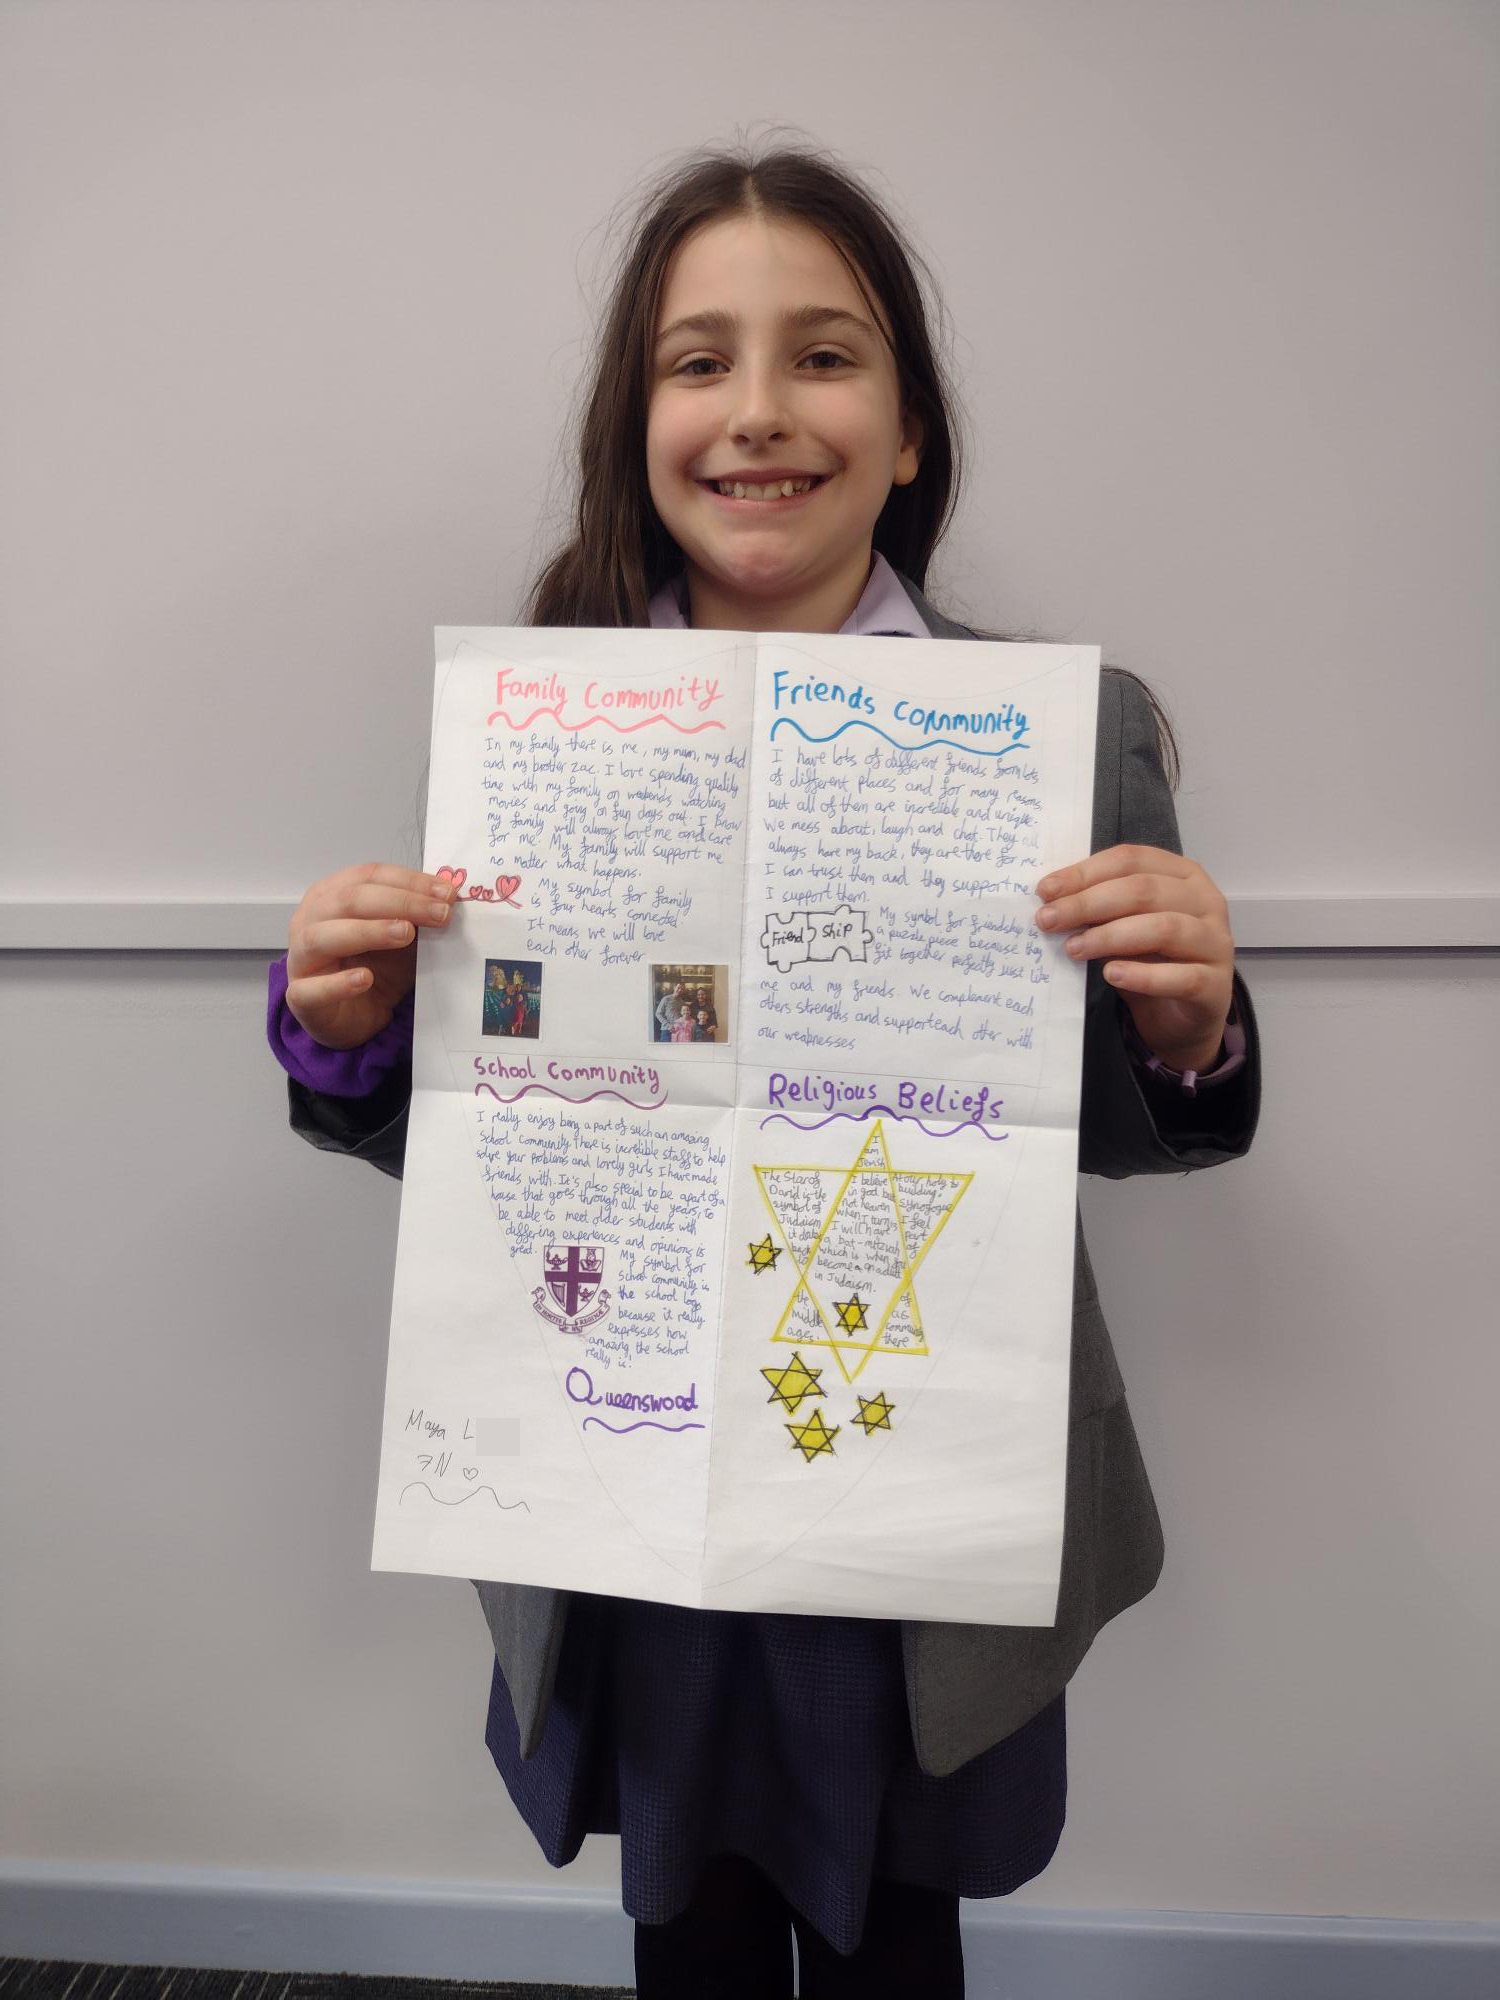 Family Community
In my family there is me, my mum, my dad
and my brother Zac. I love spending quality
time with my family on weekends watching
movies and going on fun days out. I know
my family will always love me and care
for me. My family will support me
no matter what happens.
My symbol for family
is four hearts connected.
It means we will love
each other forever
Friends Community
I have lots of different friends from lots
of different places and for many reasons,
but all of them are incredible and unique.
We mess about, laugh and chat. They all
always have my back, they are there for me.
I can trust them and they support me
I support them.
Friend Ship
My symbol for friendship is
a puzzle piece because they
fit together perfectly just like
me and my friends. We complement each
others strengths and support each other with
our weaknesses
School Community
I really enjoy being a part of such an amazing
School community. There is incredible staff to help
solve your problems and lovely girls I have made
friends with. It's also special to be a part of a
house that goes through all the years, to
be able to meet older students with
differing experiences and opinions is
great.
My symbol for
School community is
the school logo
because it really
expresses how
amazing the school
really is!
Queenswood
Maya L
7N
Religious Beliefs
I
am
Jewish
The Star of
David is the
symbol of
Judaism
it dates
back
to
the
middle
ages.
I believe
in god but
not heaven
when I turn 13
I will have
a bat-mitzvah
which is when you
become an adult
in Judaism.
At our holy
building,
synogogue
I feel
part
of
of
community
there